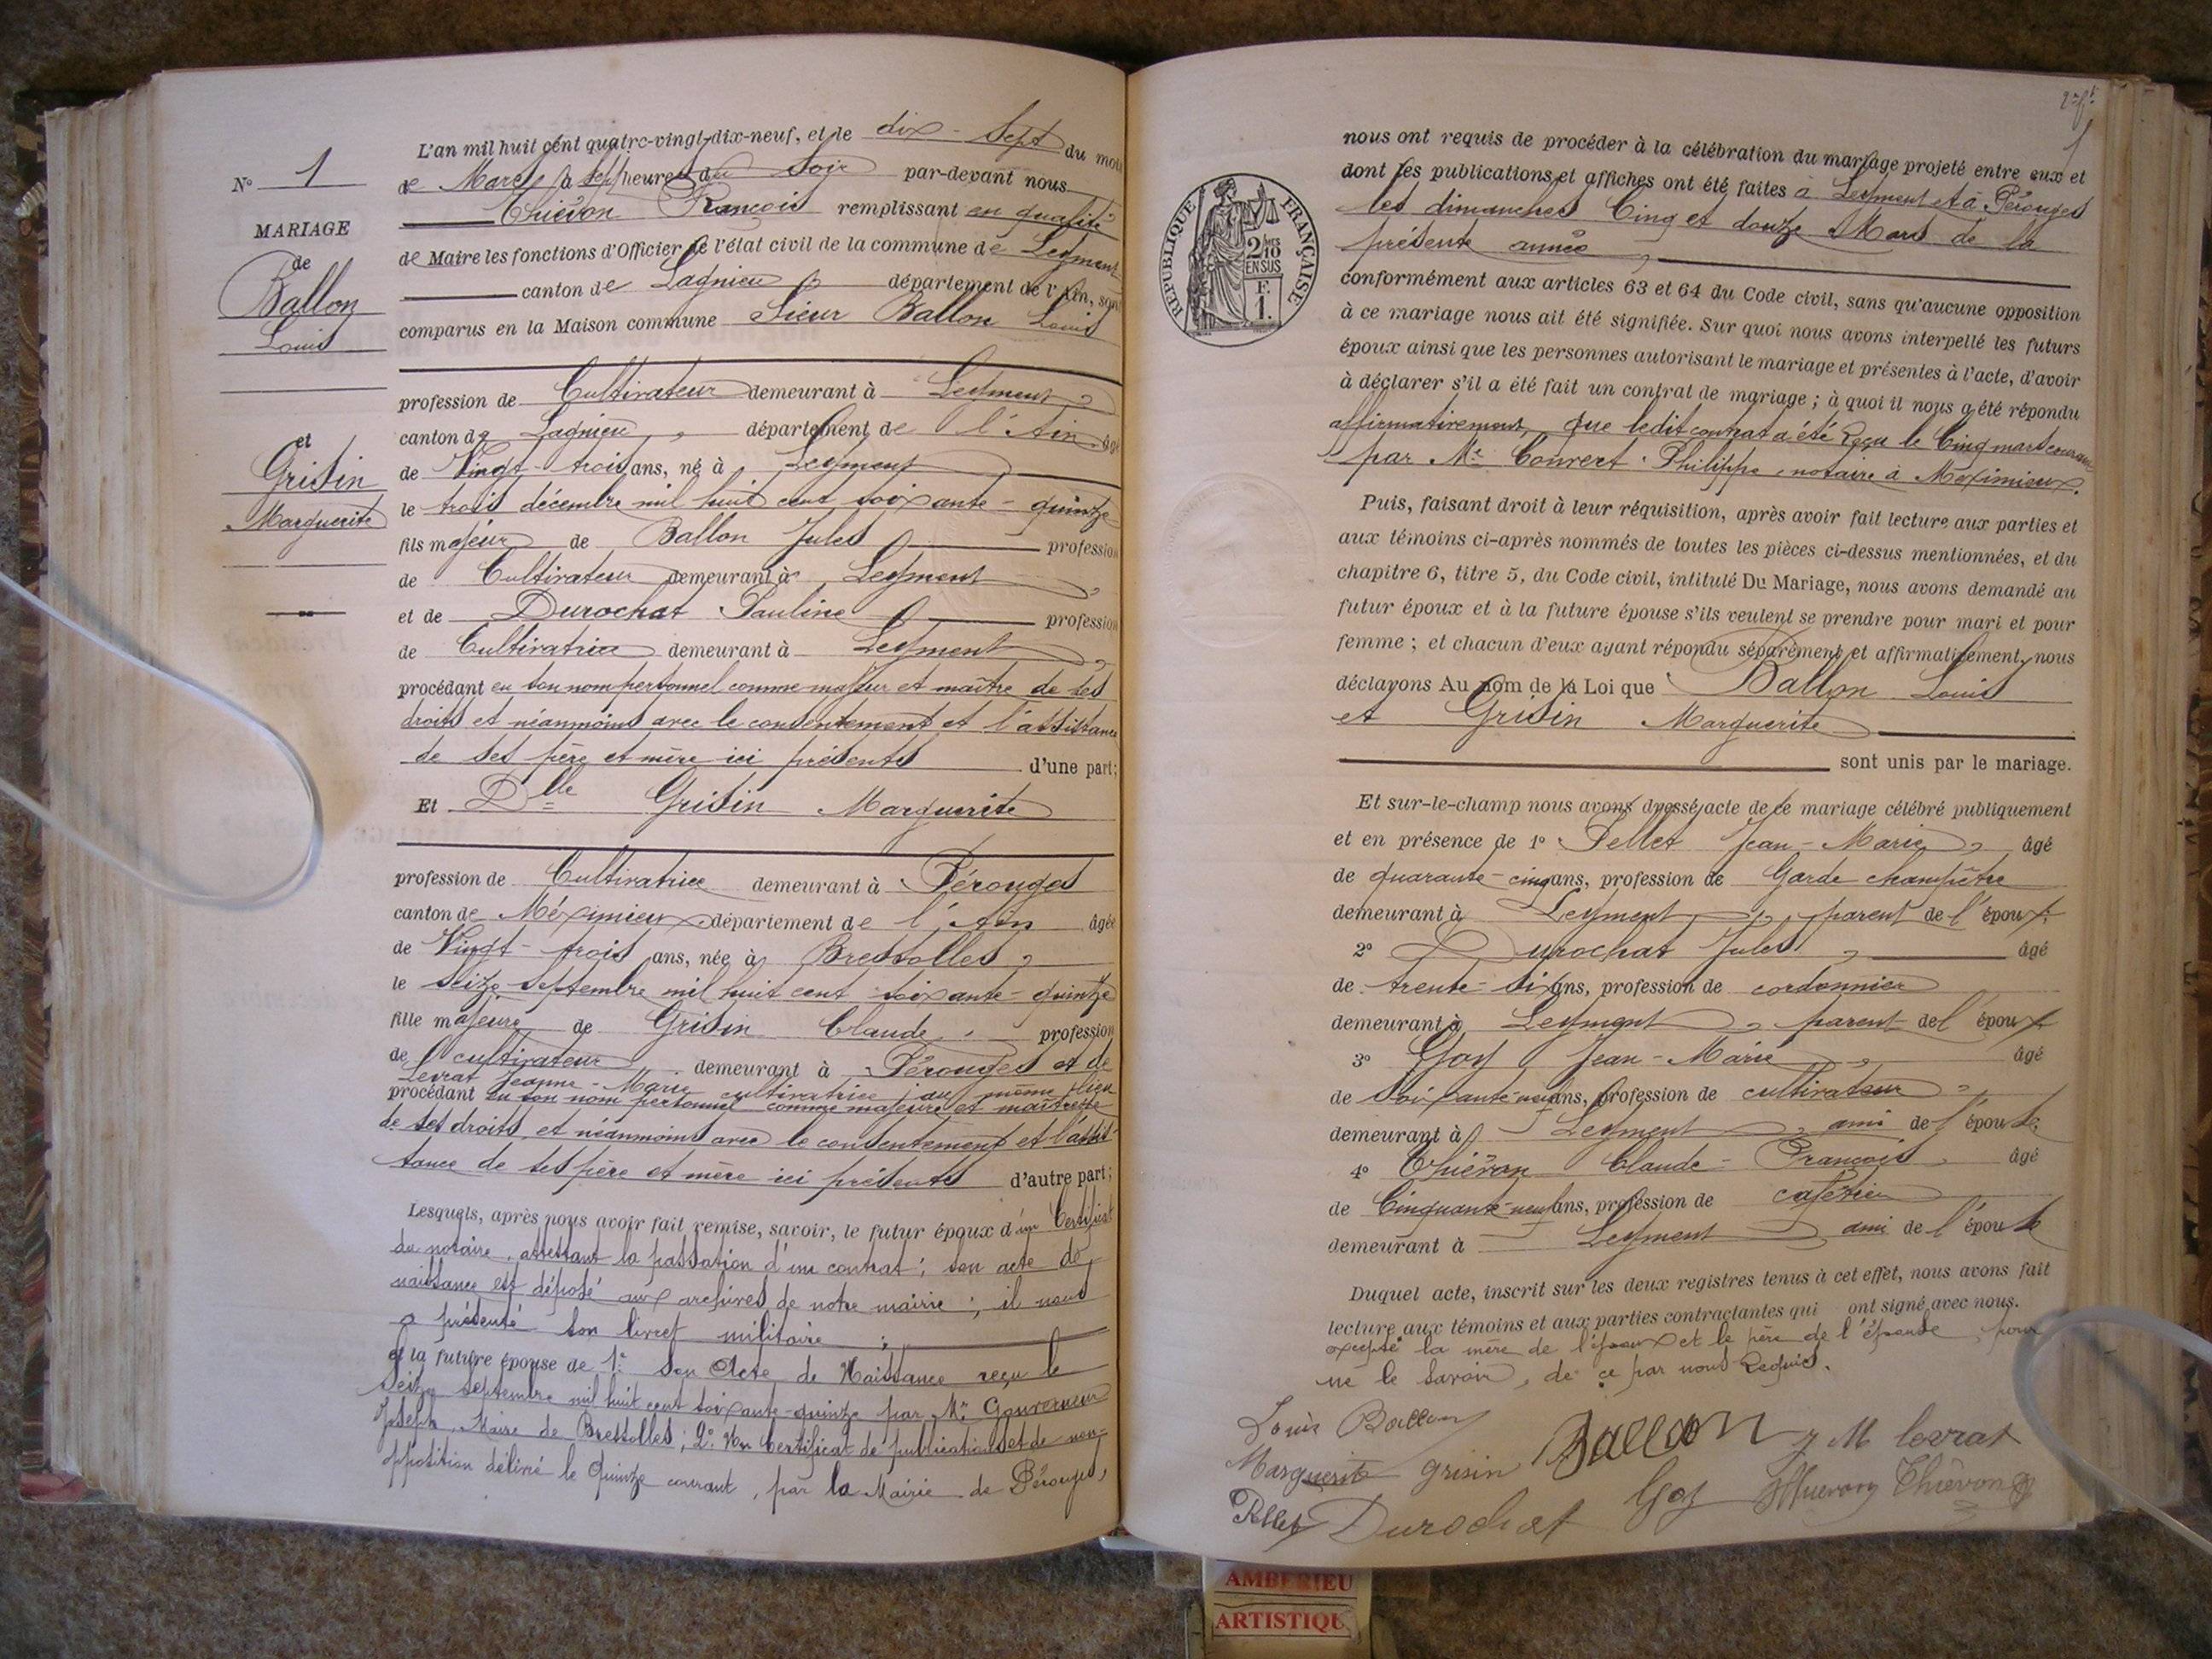 N° 1
MARIAGE
de
Ballon
Louis
et
Grisin
Marguerite
L'an mil huit cent quatre-vingt-dix-neuf, et le dix-sept du mois
de Mars, à sept heures du soir par-devant nous
Thiévon François remplissant en qualité
de Maire les fonctions d'Officier de l'état civil de la commune de Leyment
canton de Lagnieu département de l'Ain, sont
comparus en la Maison commune Sieur Ballon Louis
profession de Cultivateur demeurant à Leyment,
canton de Lagnieu, département de l'Ain âgé
de Vingt-trois ans, né à Leyment
le trois décembre mil huit cent soixante-quinze
fils majeur de Ballon Jules profession
de Cultivateur demeurant à Leyment,
et de Durochat Pauline profession
de Cultivatrice demeurant à Leyment,
procédant en son nom personnel comme majeur et maître de ses
droits et néanmoins avec le consentement et l'assistance
de ses père et mère ici présents d'une part;
Et Dlle Grisin Marguerite
profession de Cultivatrice demeurant à Pérouges
canton de Méximieux département de l'Ain âgée
de Vingt-trois ans, née à Bressolles,
le seize septembre mil huit cent soixante-quinze
fille majeure de Grisin Claude, profession
de cultivateur demeurant à Pérouges et de
Levrat Jeanne-Marie cultivatrice, au même lieu
procédant en son nom personnel comme majeure et maîtresse
de ses droits, et néanmoins avec le consentement et l'assis-
tance de ses père et mère ici présents d'autre part;
Lesquels, après nous avoir fait remise, savoir, le futur époux d'un Certificat
de notaire, attestant la passation d'un contrat; son acte de
naissance est déposé aux archives de notre mairie; il nous
a présenté son livret militaire;
et la future épouse de 1° Son Acte de Naissance reçu le
seize septembre mil huit cent soixante-quinze par Mr Gouverneur
Joseph, Maire de Bressolles; 2° Un Certificat de publications et de non-
opposition délivré le quinze courant, par la Mairie de Pérouges,
1
REPUBLIQUE FRANÇAISE
2/10
EN SUS
F.
1.
nous ont requis de procéder à la célébration du mariage projeté entre eux et
dont les publications et affiches ont été faites à Leyment et à Pérouges
les dimanches Cinq et douze Mars de la
présente année,
conformément aux articles 63 et 64 du Code civil, sans qu'aucune opposition
à ce mariage nous ait été signifiée. Sur quoi nous avons interpellé les futurs
époux ainsi que les personnes autorisant le mariage et présentes à l'acte, d'avoir
à déclarer s'il a été fait un contrat de mariage; à quoi il nous a été répondu
affirmativement, que ledit contrat a été Reçu le Cinq mars courant
par Me Convert Philippe, notaire à Meximieux.
Puis, faisant droit à leur réquisition, après avoir fait lecture aux parties et
aux témoins ci-après nommés de toutes les pièces ci-dessus mentionnées, et du
chapitre 6, titre 5, du Code civil, intitulé Du Mariage, nous avons demandé au
futur époux et à la future épouse s'ils veulent se prendre pour mari et pour
femme; et chacun d'eux ayant répondu séparément et affirmativement, nous
déclarons Au nom de la Loi que Ballon Louis
et Grisin Marguerite
sont unis par le mariage.
Et sur-le-champ nous avons dressé acte de ce mariage célébré publiquement
et en présence de 1° Pellet Jean-Marie, âgé
de quarante-cinq ans, profession de Garde champêtre
demeurant à Leyment, parent de l'époux;
2° Durochat Jules, âgé
de trente-six ans, profession de cordonnier
demeurant à Leyment, parent de l'époux
3° Goy Jean-Marie, âgé
de soixante-neuf ans, profession de cultivateur
demeurant à Leyment, ami de l'épouse;
4° Thiévon Claude-François, âgé
de Cinquante-neuf ans, profession de cafetier
demeurant à Leyment, ami de l'épouse
Duquel acte, inscrit sur les deux registres tenus à cet effet, nous avons fait
lecture aux témoins et aux parties contractantes qui ont signé avec nous.
excepté la mère de l'époux et le père de l'épouse, pour
ne le savoir, de ce par nous Requis.
Louis Ballon
Marguerite grisin Ballon J M levrat
Pellet Durochat Goy Thiévon
AMBERIEU
ARTISTIQU